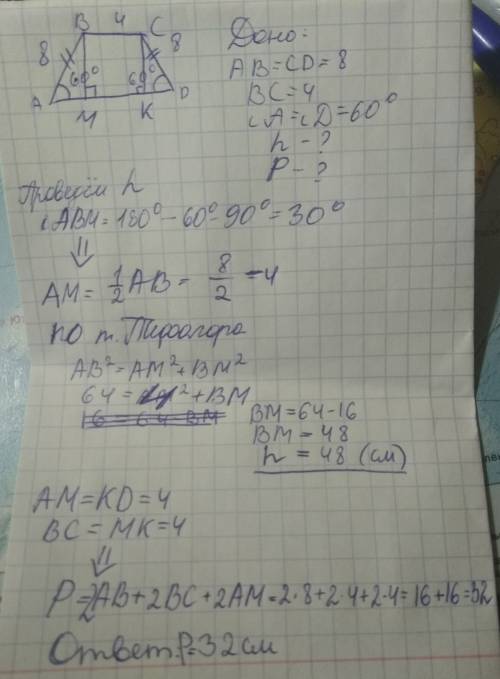 B 4 C
8 8
60° 60°
A M K D
Дано:
AB=CD=8
BC=4
∠A=∠D=60°
h - ?
P - ?
Проведём h
∠ABM=180°-60°-90°=30°
⇓
AM= 1/2 AB= 8/2 =4
по т. Пифагора
AB²=AM²+BM²
64 = ²+BM
16 = 64 BM
BM=64-16
BM = 48
h = 48 (см)
AM=KD=4
BC=MK=4
⇓
P=2AB+2BC+2AM=2·8+2·4+2·4=16+16=32
Ответ: P=32 см